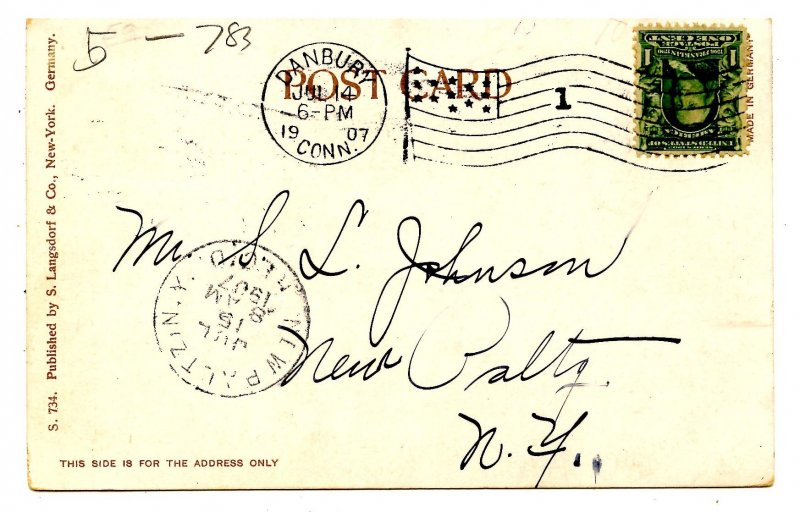 5 - 783
POST CARD
DANBURY
JUL 14
6-PM
19 07
CONN.
1
ONE CENT
POSTAGE
FRANKLIN
1 1
MADE IN GERMANY.
S. 734. Published by S. Langsdorf & Co., New-York. Germany.
Mr. S. L. Johnson
New Paltz
N.Y.
NEW PALTZ, N.Y.
JUL
15
8 AM
1907
REC'D.
THIS SIDE IS FOR THE ADDRESS ONLY